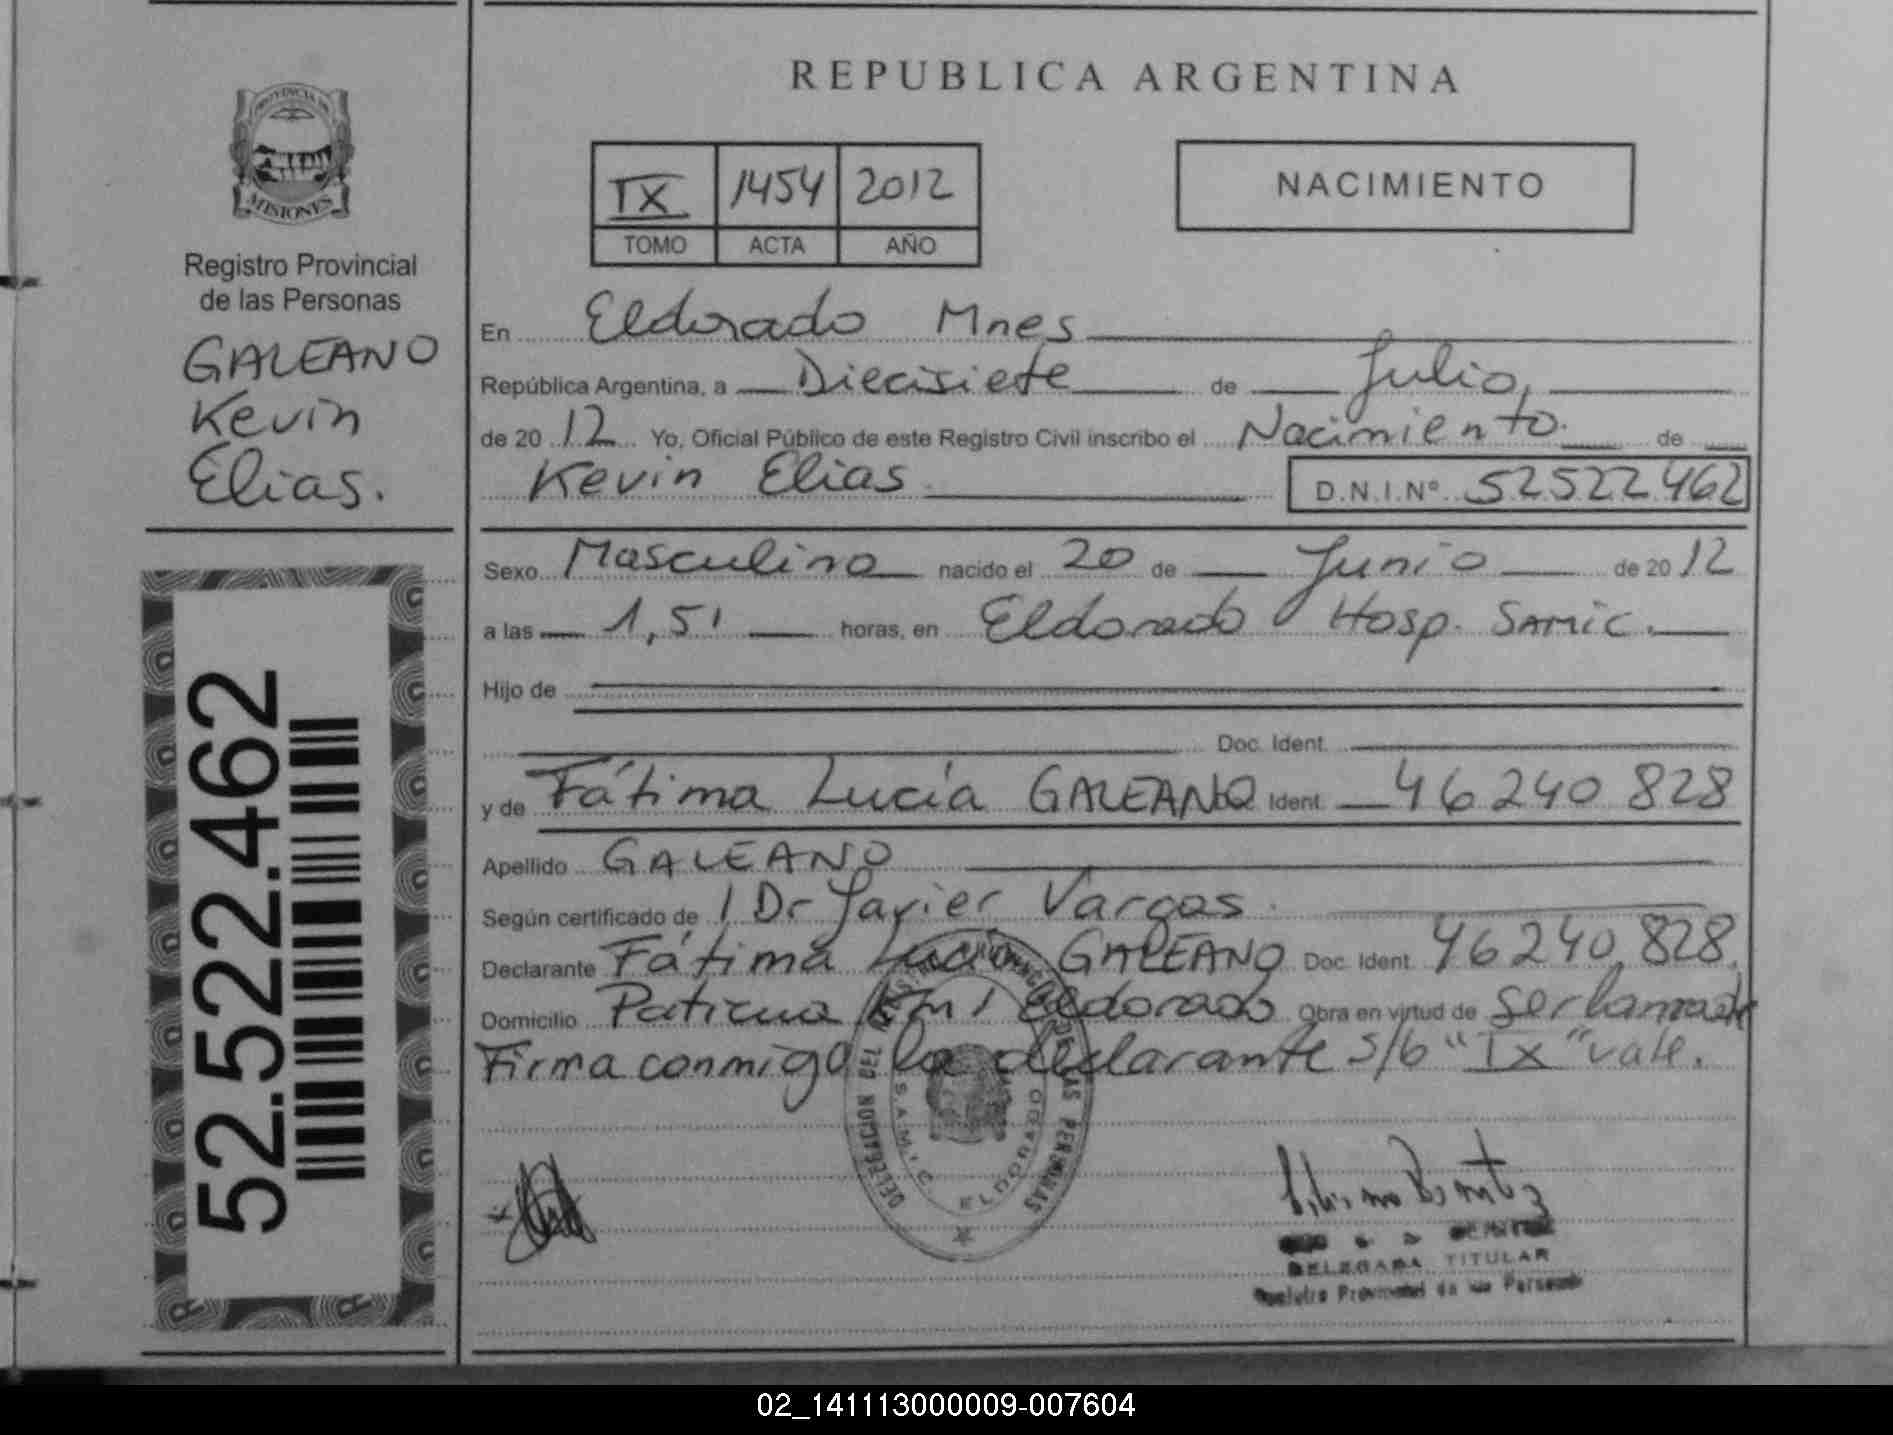 PROVINCIA DE
MISIONES
Registro Provincial
de las Personas
GALEANO
Kevin
Elias.
52.522.462
REPUBLICA ARGENTINA
IX 1454 2012
TOMO ACTA AÑO
NACIMIENTO
En Eldorado Mnes
República Argentina, a Diecisiete de Julio,
de 20 12 Yo, Oficial Público de este Registro Civil inscribo el Nacimiento. de
Kevin Elias D.N.I.Nº 52522462
Sexo Masculino nacido el 20 de Junio de 20 12
a las 1,51 horas, en Eldorado Hosp. SAMIC.
Hijo de
Doc. Ident.
y de Fátima Lucía GALEANO Ident. 46240828
Apellido GALEANO
Según certificado de Dr Javier Vargas.
Declarante Fátima Lucía GALEANO Doc. Ident. 46240828.
Domicilio Km 1 Eldorado Obra en virtud de Ser la madre
Firma conmigo la declarante S/b "IX" vale.
DELEGACION DE LAS PERSONAS
S.A.M.I.C. ELDORADO
DELEGADA TITULAR
Registro Provincial de las Personas
02_141113000009-007604